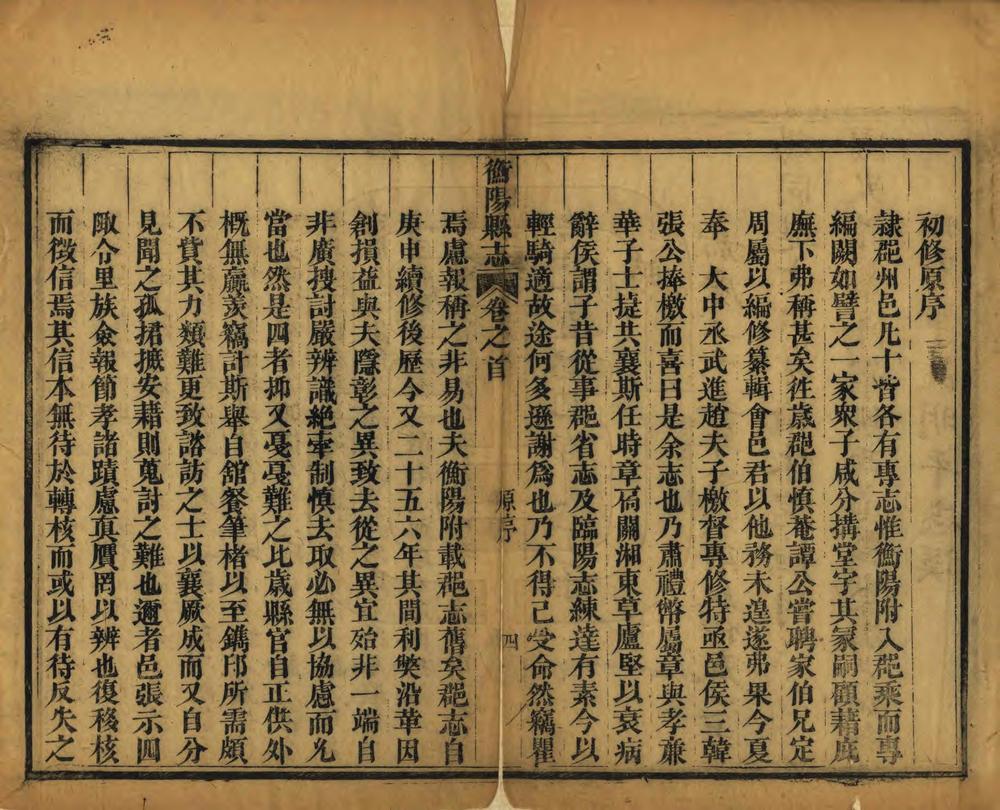 初修原序
隸郡州邑凡十皆各有專志惟衡陽附入郡乘而專
編闕如譬之一家衆子咸分搆堂宇其冢嗣顧藉庇
廡下弗稱甚矣徃歲郡伯慎菴譚公嘗聘家伯兄定
周屬以編修纂輯會邑君以他務未遑遂弗果今夏
奉　大中丞武進趙夫子檄督專修特亟邑侯三韓
張公捧檄而喜曰是余志也乃肅禮幣屬章與孝亷
華子士㨗共襄斯任時章扃關湘東草廬堅以衰病
辭侯謂子昔從事郡省志及臨陽志練達有素今以
輕騎適故途何多遜謝爲也乃不得已受命然竊瞿
衡陽縣志
卷之首
原序
四
焉慮報稱之非易也夫衡陽附載郡志舊矣郡志自
庚申續修後歷今又二十五六年其間利獘沿革因
創損益與夫隱彰之異致去從之異宜殆非一端自
非廣搜討嚴辨識絶牽制慎去取必無以協慮而允
當也然是四者抑又戞戞難之比歲縣官自正供外
概無贏羨竊計斯舉自館餐筆楮以至鐫印所需頗
不貲其力類難更致諮訪之士以襄厥成而又自分
見聞之孤捃摭安藉則蒐討之難也邇者邑張示四
陬令里族僉報節孝諸蹟慮真贋罔以辨也復移核
而徴信焉其信本無待於轉核而或以有待反失之